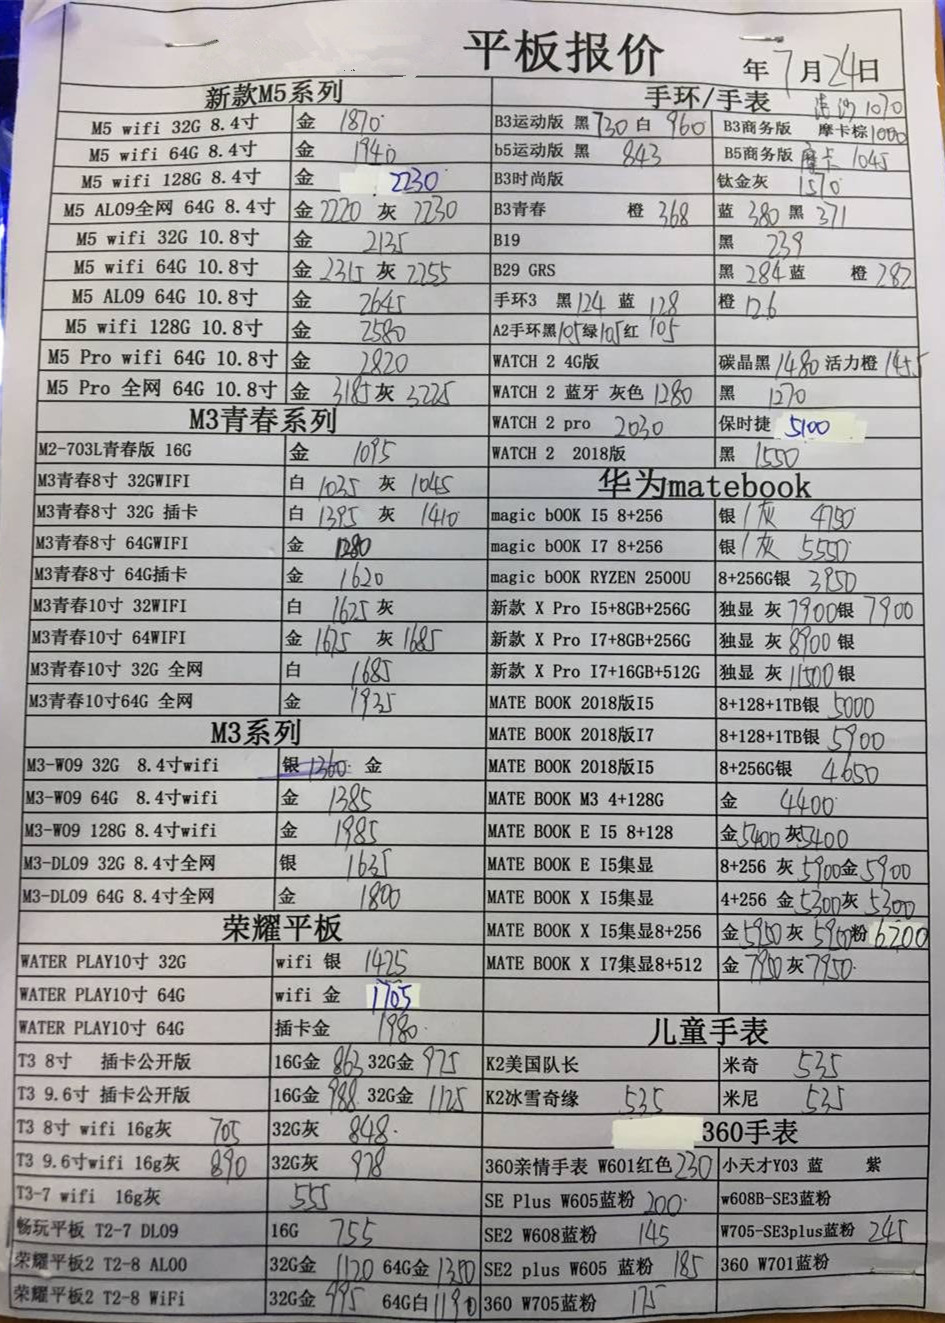 平板报价
年7月24日
新款M5系列
M5 wifi 32G 8.4寸 金 1870
M5 wifi 64G 8.4寸 金 1940
M5 wifi 128G 8.4寸 金 2230
M5 AL09全网 64G 8.4寸 金2220 灰 2230
M5 wifi 32G 10.8寸 金 2135
M5 wifi 64G 10.8寸 金 2315 灰 2255
M5 AL09 64G 10.8寸 金 2645
M5 wifi 128G 10.8寸 金 2580
M5 Pro wifi 64G 10.8寸 金 2820
M5 Pro 全网 64G 10.8寸 金 3185灰 3225
M3青春系列
M2-703L青春版 16G 金 1095
M3青春8寸 32GWIFI 白 1035 灰 1045
M3青春8寸 32G 插卡 白 1395 灰 1410
M3青春8寸 64GWIFI 金 1280
M3青春8寸 64G插卡 金 1620
M3青春10寸 32WIFI 白 1625 灰
M3青春10寸 64WIFI 金 1675 灰 1685
M3青春10寸 32G 全网 白 1685
M3青春10寸64G 全网 金 1935
M3系列
M3-W09 32G 8.4寸wifi 银 1360 金
M3-W09 64G 8.4寸wifi 金 1385
M3-W09 128G 8.4寸wifi 金 1985
M3-DL09 32G 8.4寸全网 银 1635
M3-DL09 64G 8.4寸全网 金 1800
荣耀平板
WATER PLAY10寸 32G wifi 银 1425
WATER PLAY10寸 64G wifi 金 1705
WATER PLAY10寸 64G 插卡金 1980
T3 8寸 插卡公开版 16G金 863 32G金 975
T3 9.6寸 插卡公开版 16G金 988 32G金 1125
T3 8寸 wifi 16g灰 705 32G灰 848
T3 9.6寸wifi 16g灰 890 32G灰 978
T3-7 wifi 16g灰 555
畅玩平板 T2-7 DL09 16G 755
荣耀平板2 T2-8 AL00 32G金 1120 64G金 1380
荣耀平板2 T2-8 WiFi 32G金 995 64G白1190
手环/手表
1070
B3运动版 黑730 白 960 B3商务版 摩卡棕1000
b5运动版 黑 843 B5商务版 摩卡 1045
B3时尚版 钛金灰 1570
B3青春 橙 368 蓝 380 黑 371
B19 黑 239
B29 GRS 黑 284 蓝 橙 282
手环3 黑124 蓝 128 橙 126
A2手环黑105绿105红 105
WATCH 2 4G版 碳晶黑1480 活力橙1455
WATCH 2 蓝牙 灰色 1280 黑 1270
WATCH 2 pro 2030 保时捷 5100
WATCH 2 2018版 黑 1550
华为matebook
magic bOOK I5 8+256 银/灰 4750
magic bOOK I7 8+256 银/灰 5550
magic bOOK RYZEN 2500U 8+256G银 3850
新款 X Pro I5+8GB+256G 独显 灰7900银 7900
新款 X Pro I7+8GB+256G 独显 灰8900 银
新款 X Pro I7+16GB+512G 独显 灰11500 银
MATE BOOK 2018版I5 8+128+1TB银 5000
MATE BOOK 2018版I7 8+128+1TB银 5900
MATE BOOK 2018版I5 8+256G银 4650
MATE BOOK M3 4+128G 金 4400
MATE BOOK E I5 8+128 金5400 灰5400
MATE BOOK E I5集显 8+256 灰 5900金5900
MATE BOOK X I5集显 4+256 金5300灰 5300
MATE BOOK X I5集显8+256 金5950 灰 5950粉 6200
MATE BOOK X I7集显8+512 金 7950灰7950
儿童手表
K2美国队长 米奇 535
K2冰雪奇缘 535 米尼 535
360手表
360亲情手表 W601红色230 小天才Y03 蓝 紫
SE Plus W605蓝粉 200 w608B-SE3蓝粉
SE2 W608蓝粉 145 W705-SE3plus蓝粉 245
SE2 plus W605 蓝粉 185 360 W701蓝粉
360 W705蓝粉 175